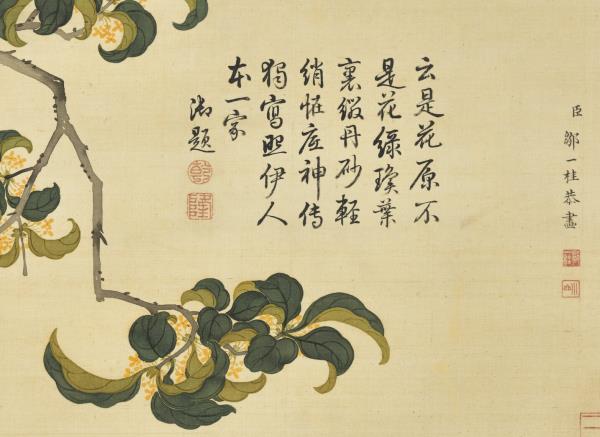 臣鄒一桂恭畫
云是花原不
是花綠瓊葉
裏綴丹砂輕
綃恠底神傳
獨寫照伊人
本一家
御題
乾
隆